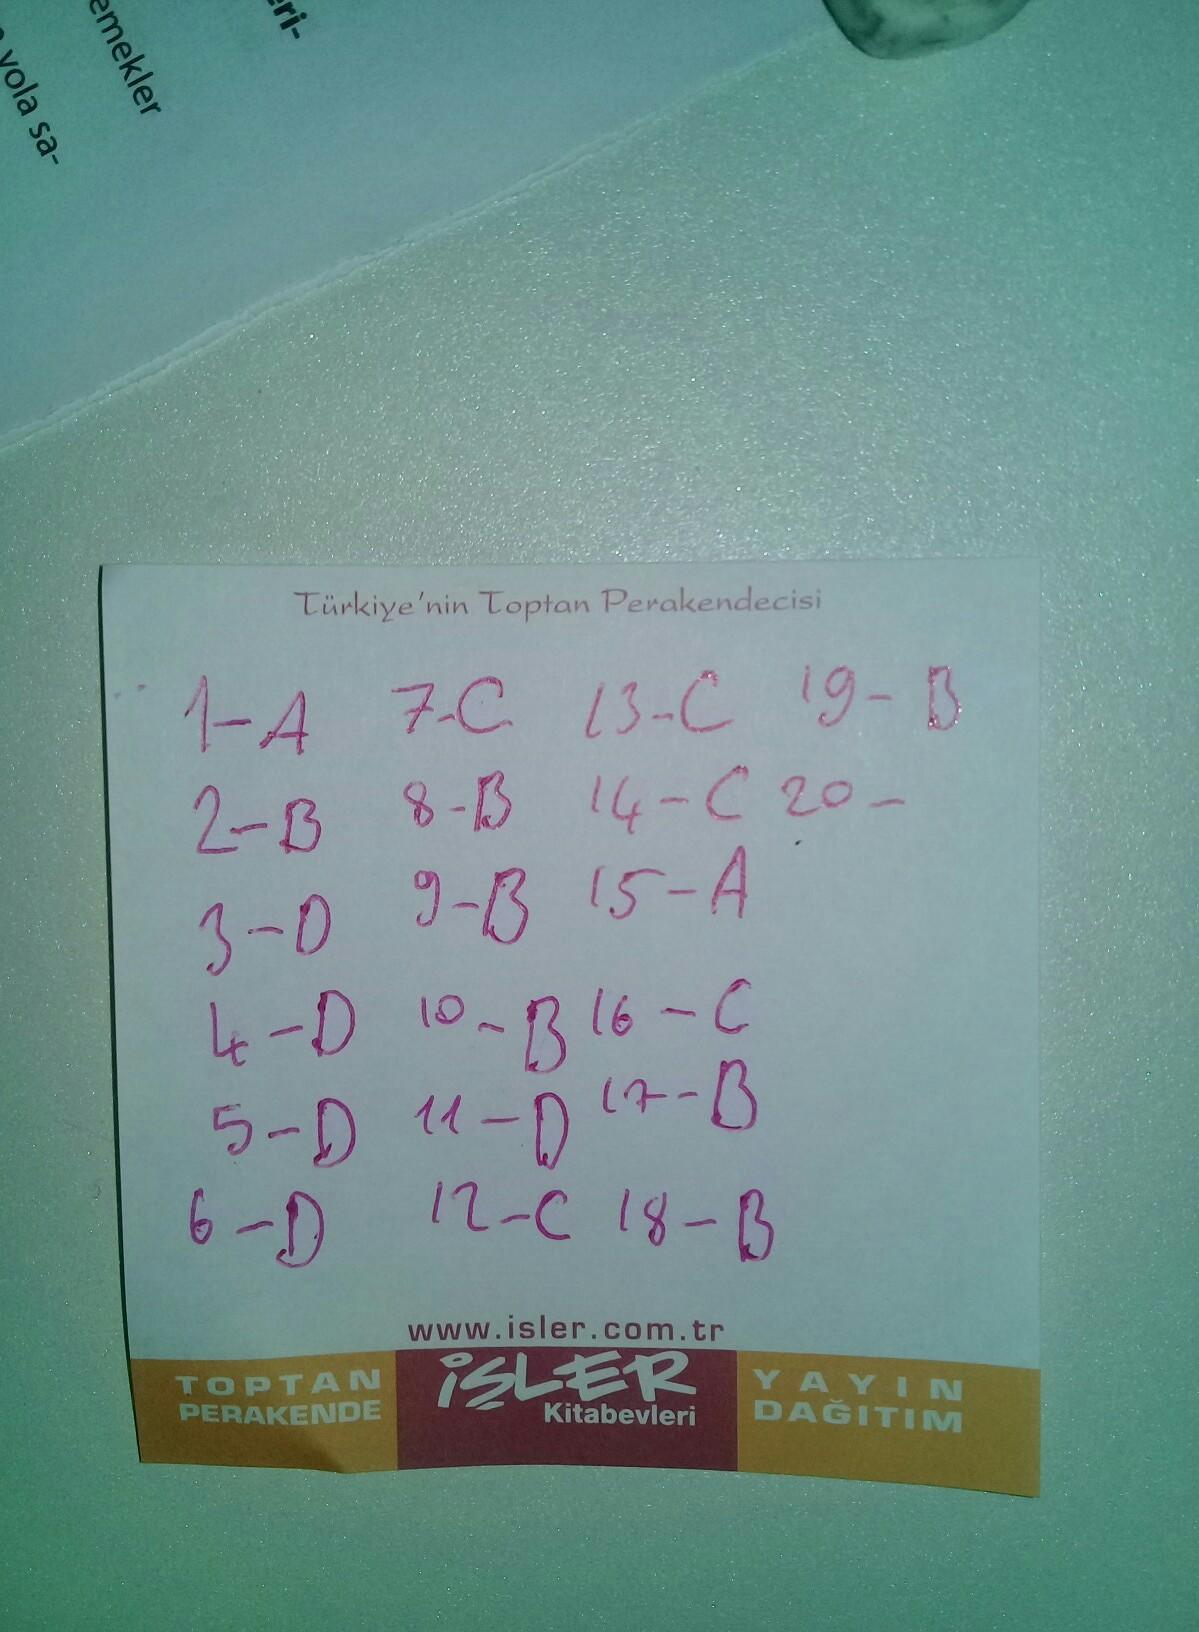 eri-
emekler
yola sa-
Türkiye'nin Toptan Perakendecisi
1-A 7-C 13-C 19-B
2-B 8-B 14-C 20-
3-D 9-B 15-A
4-D 10-B 16-C
5-D 11-D 17-B
6-D 12-C 18-B
www.isler.com.tr
TOPTAN PERAKENDE
İŞLER
Kitabevleri
YAYIN
DAĞITIM